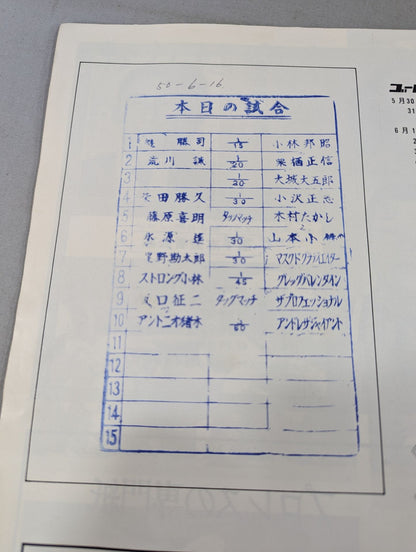 50-6-16
本日の試合
1 勝司 1/15 小林邦昭
2 荒川 誠 1/20 栗栖正信
3 1/20 大城大五郎
4 安田勝久 1/30 小沢正志
5 藤原喜明 タッグマッチ 木村たかし
6 永源 遙 1/30 山本小
7 星野勘太郎 1/30 マスクドクリエイター
8 ストロング小林 1/45 グレッグバレンタイン
9 坂口征二 タッグマッチ ザプロフェッショナル
10 アントニオ猪木 /60 アンドレザジャイアント
11
12
13
14
15
5月30
31
6月1